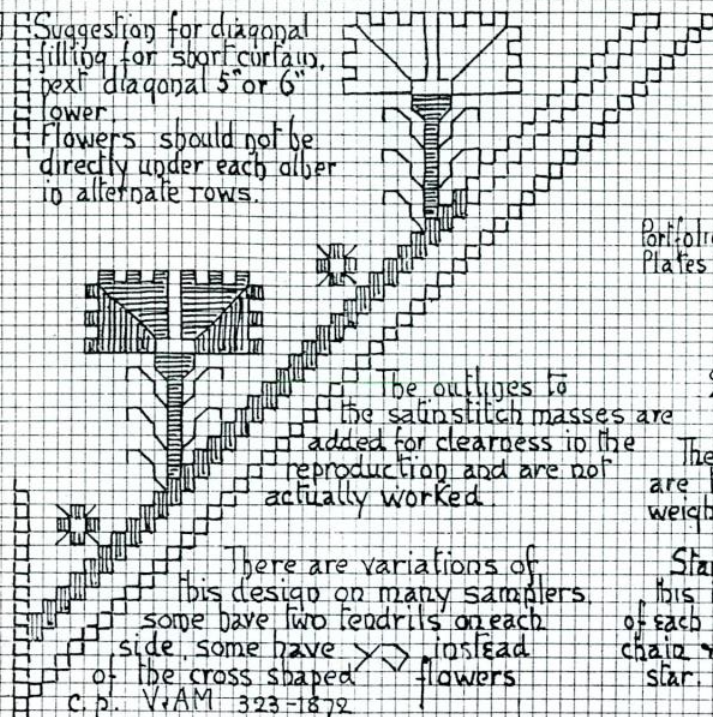 Suggestion for diagonal
filling for short curtain,
next diagonal 5" or 6"
lower.
Flowers should not be
directly under each other
in alternate rows.
Portfolio
Plates
The outlines to
the satinstitch masses are
added for clearness in the
reproduction and are not
actually worked.
The
are
weigh
There are variations of
this design on many samplers.
some have two tendrils on each
side, some have instead
of the cross shaped flowers
c.p. V & AM 323-1872
Star
this
of each
chain &
star.